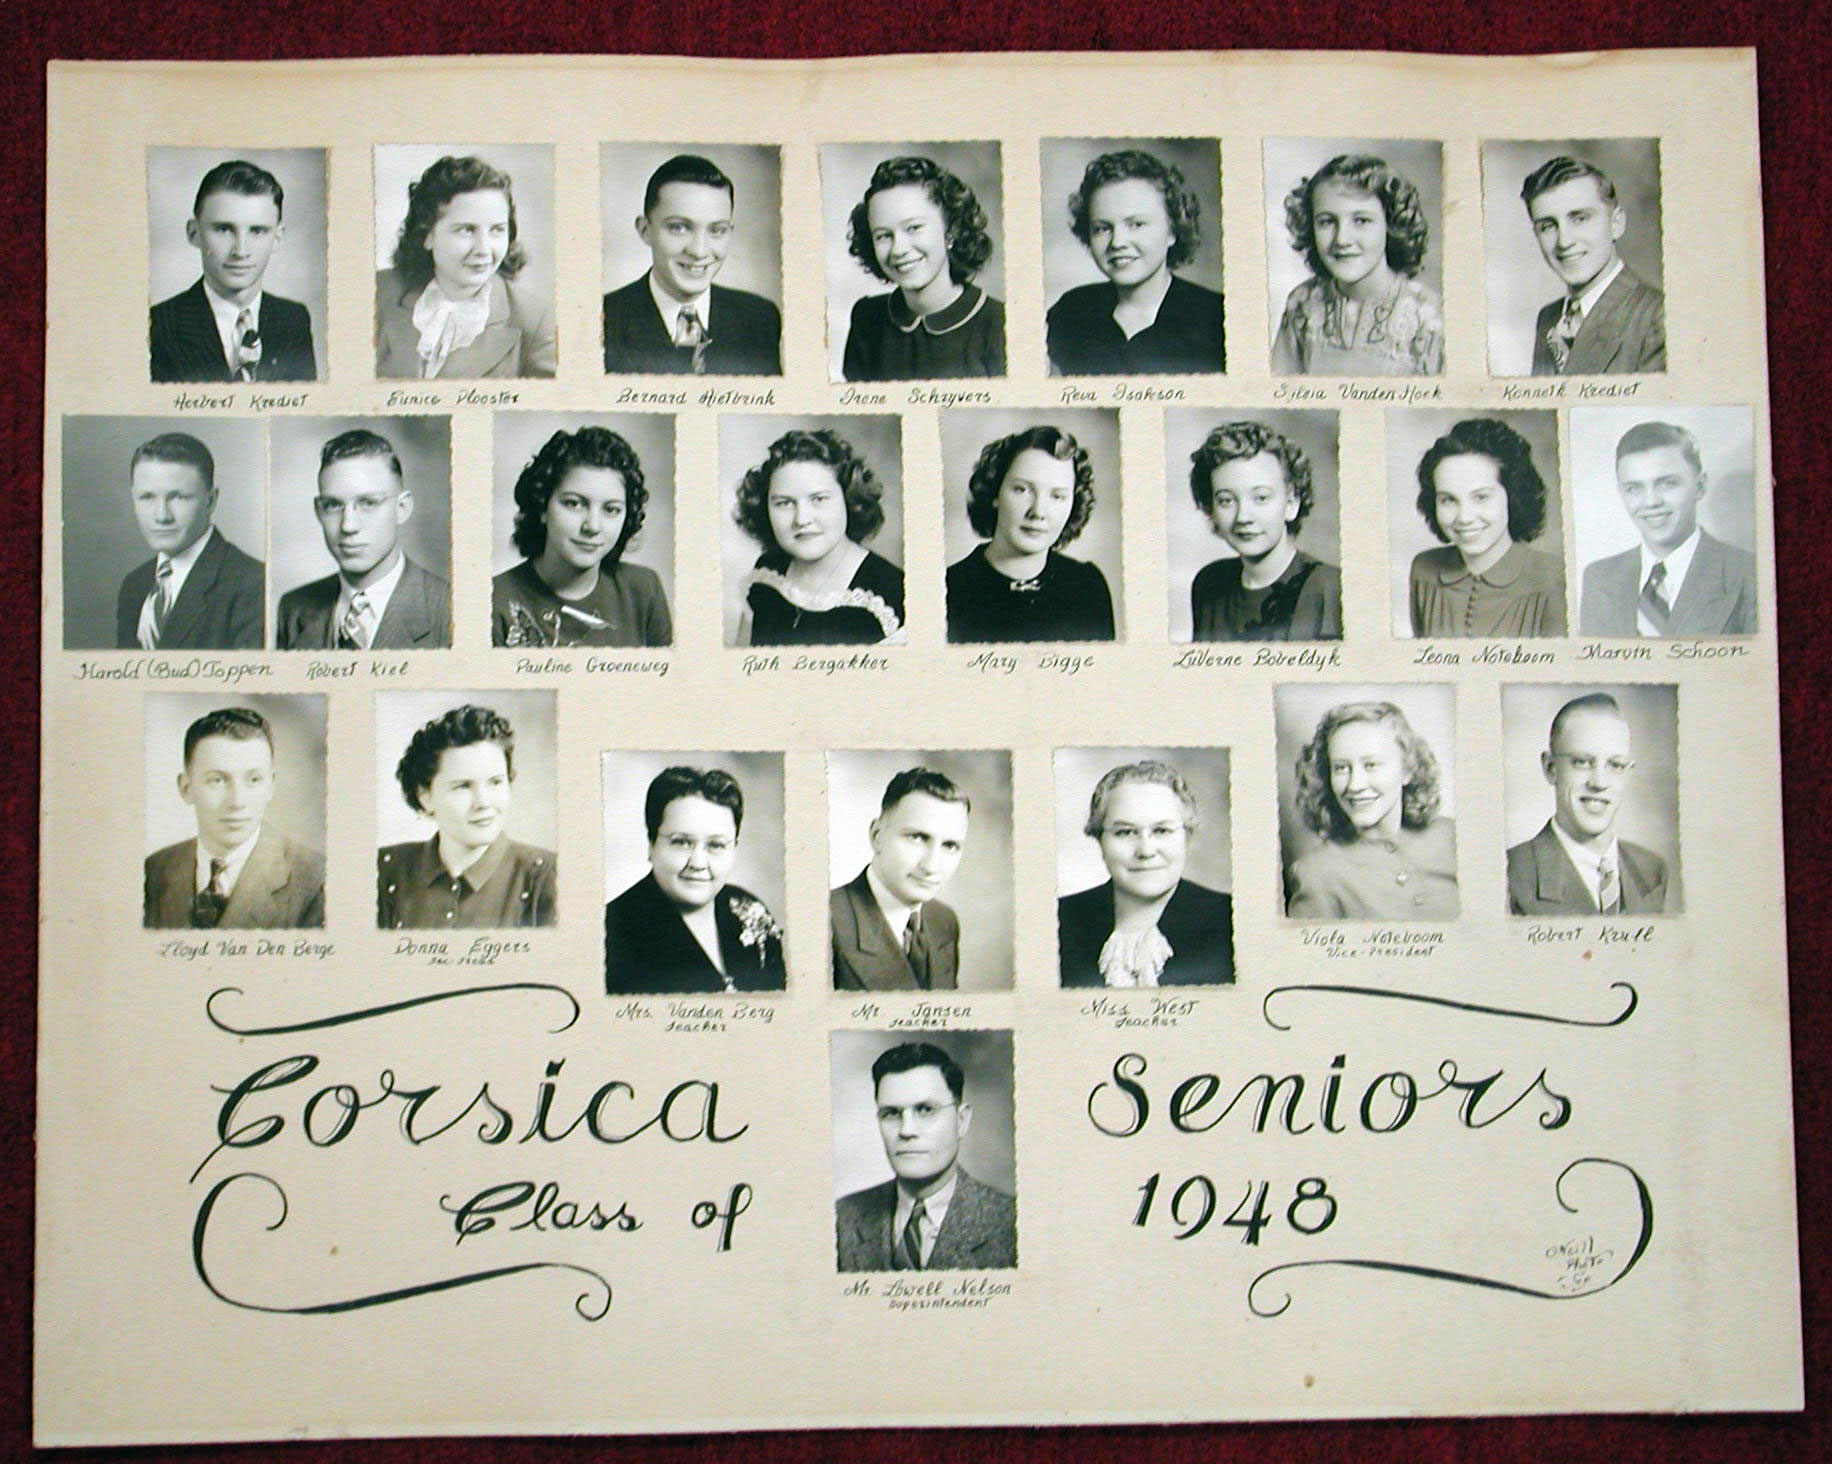 Herbert Krediet
Eunice Plooster
Bernard Hietbrink
Irene Schryvers
Reva Isakson
Silvia Vanden Hoek
Kenneth Krediet
Harold (Bud) Toppen
Robert Kiel
Pauline Groeneweg
Ruth Bergakker
Mary Bigge
LuVerne Boveldyk
Leona Noteboom
Marvin Schoon
Lloyd Van Den Berge
Donna Eggers
Mrs. Vanden Berg
Teacher
Mr. Jansen
Teacher
Miss West
Teacher
Viola Noteboom
Vice-President
Robert Krull
Corsica Seniors
Class of 1948
Mr. Lowell Nelson
Superintendent
O'Neill
Photo
Co